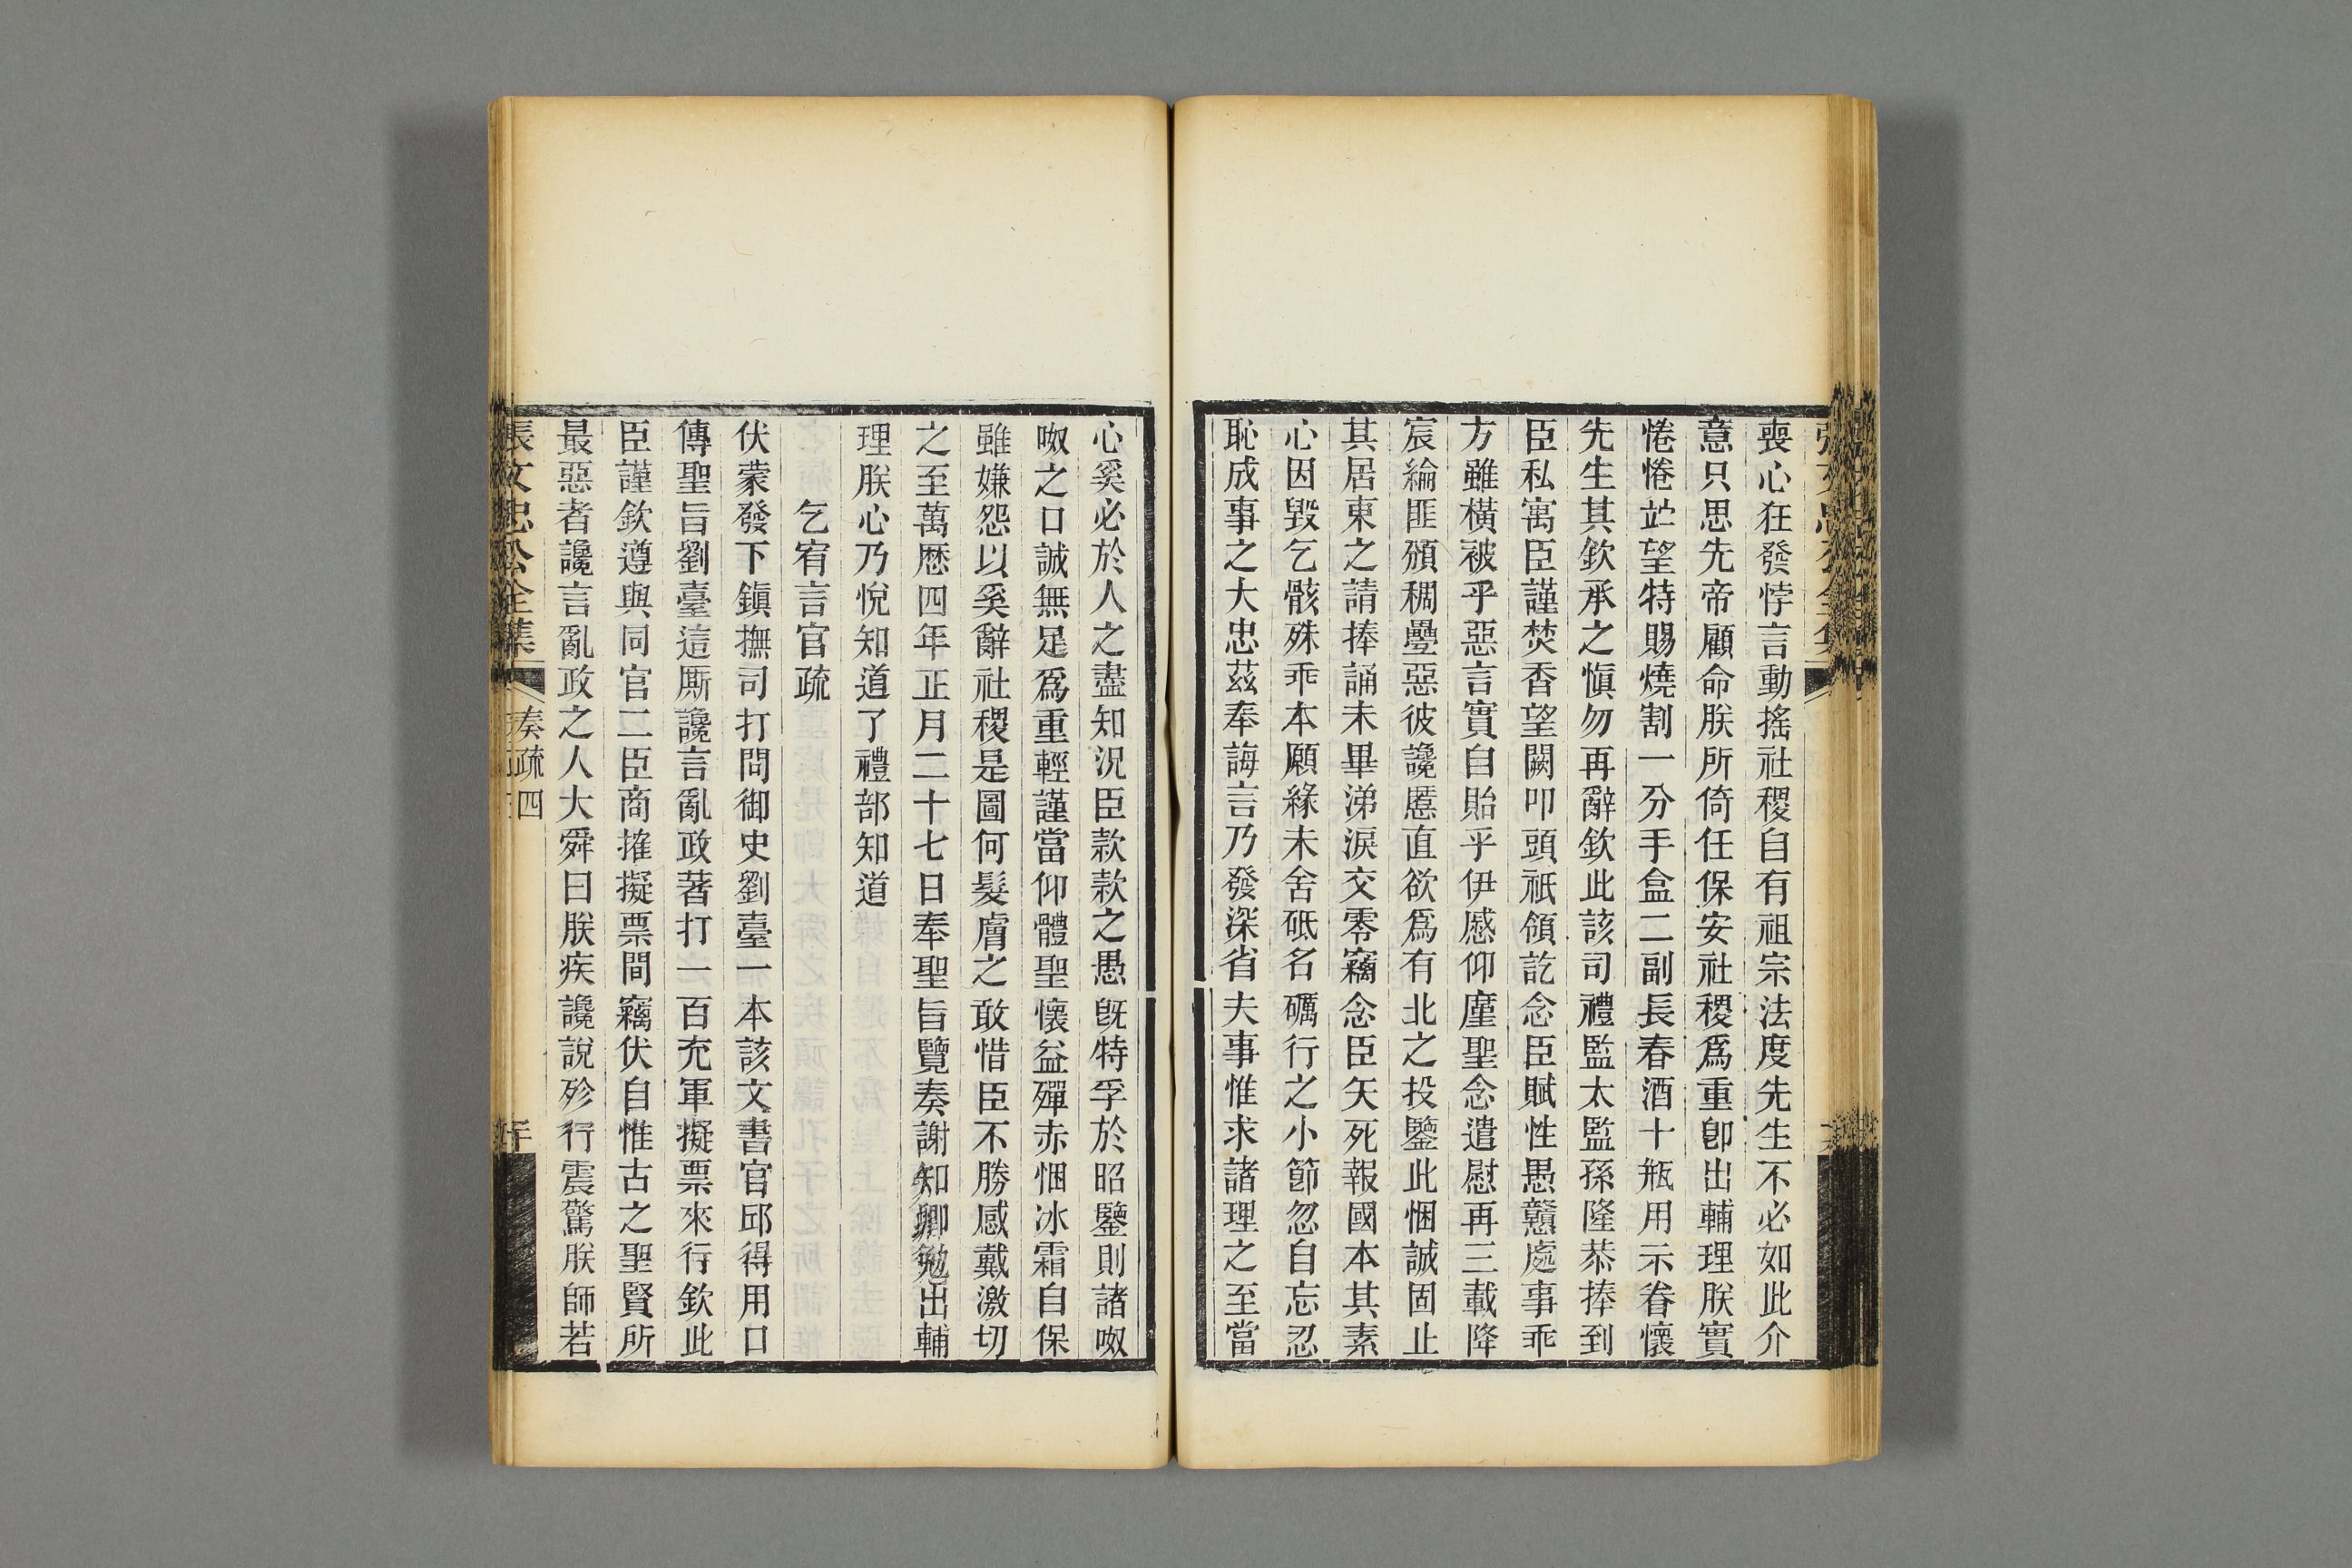 喪心狂發悖言動搖社稷自有祖宗法度先生不必如此介
意只思先帝顧命朕所倚任保安社稷爲重卽出輔理朕實
惓惓竚望特賜燒割一分手盒二副長春酒十瓶用示眷懷
先生其欽承之愼勿再辭欽此該司禮監太監孫隆恭捧到
臣私寓臣謹焚香望闕叩頭祇領訖念臣賦性愚戇處事乖
方雖橫被乎惡言實自貽乎伊慼仰廑聖念遣慰再三載降
宸綸匪頒稠疊惡彼讒慝直欲爲有北之投鑒此悃誠固止
其居東之請捧誦未畢涕淚交零竊念臣矢死報國本其素
心因毀乞骸殊乖本願緣未舍砥名礪行之小節忽自忘忍
恥成事之大忠茲奉誨言乃發深省夫事惟求諸理之至當
心奚必於人之盡知況臣款款之愚旣特孚於昭鑒則諸呶
呶之口誠無足爲重輕謹當仰體聖懷益殫赤悃冰霜自保
雖嫌怨以奚辭社稷是圖何髮膚之敢惜臣不勝感戴激切
之至萬歷四年正月二十七日奉聖旨覽奏謝知卿勉出輔
理朕心乃悅知道了禮部知道
乞宥言官疏
伏蒙發下鎮撫司打問御史劉臺一本該文書官邱得用口
傳聖旨劉臺這厮讒言亂政著打一百充軍擬票來行欽此
臣謹欽遵與同官二臣商搉擬票間竊伏自惟古之聖賢所
最惡者讒言亂政之人大舜曰朕疾讒說殄行震驚朕師若
張文忠公全集
奏疏四